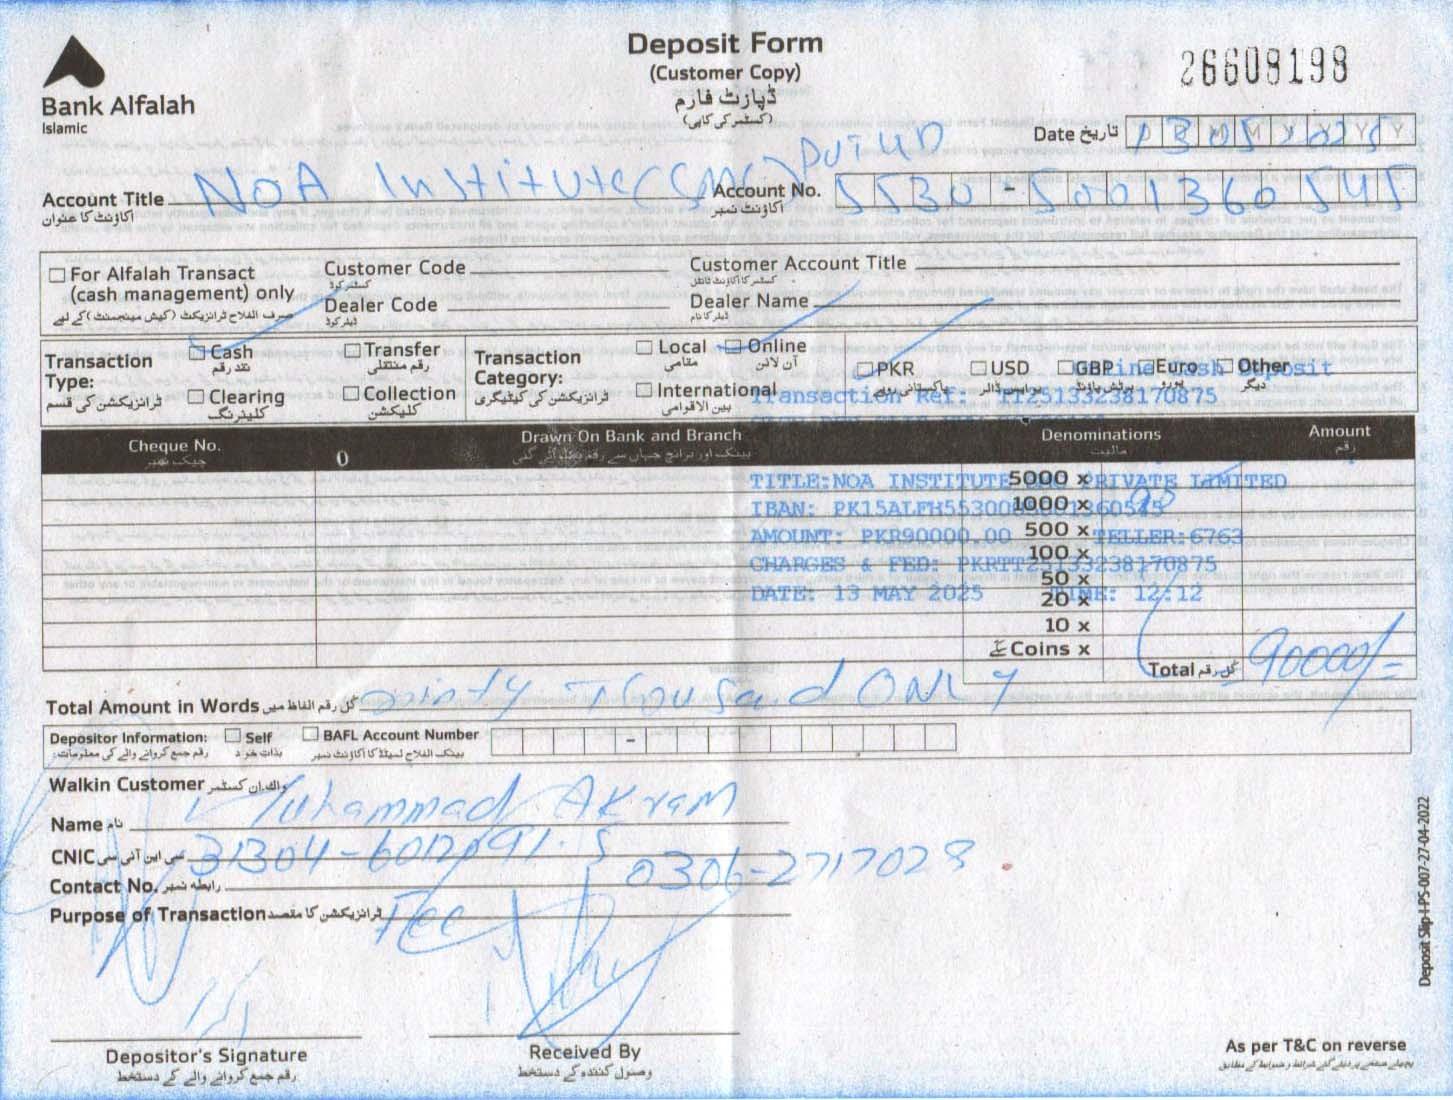 Bank Alfalah
Islamic
Deposit Form
(Customer Copy)
ڈپازٹ فارم
(کسٹمر کی کاپی)
26608198
Date تاریخ 13052025
Account Title NOA Institute (SMC) PVT LTD
اکاؤنٹ کا عنوان
Account No. 5530-5001360545
اکاؤنٹ نمبر
For Alfalah Transact
(cash management) only
صرف الفلاح ٹرانزیکٹ (کیش مینجمنٹ) کے لیے
Customer Code
کسٹمر کوڈ
Dealer Code
ڈیلر کوڈ
Customer Account Title
کسٹمر کا اکاؤنٹ ٹائٹل
Dealer Name
ڈیلر کا نام
Transaction
Type:
ٹرانزیکشن کی قسم
Cash
نقد رقم
Transfer
رقم منتقلی
Clearing
کلیئرنگ
Collection
کلیکشن
Transaction
Category:
ٹرانزیکشن کی کیٹیگری
Local
مقامی
Online
آن لائن
International
بین الاقوامی
PKR
پاکستانی روپے
USD
یو ایس ڈالر
GBP
برٹش پاؤنڈ
Euro
یورو
Other
دیگر
Transaction Ref: TT25133238170875
Cheque No.
چیک نمبر
0
Drawn On Bank and Branch
Denominations
مالیت
Amount
رقم
TITLE:NOA INSTITUTE PRIVATE LIMITED
AMOUNT: PKR90000.00 TELLER:6763
CHARGES & FED: PKRTT25133238170875
DATE: 13 MAY 2025 TIME: 12:12
5000 x
1000 x 90
500 x
100 x
50 x
20 x
10 x
سکے Coins x
Total کل رقم 90000/-
Total Amount in Words کل رقم الفاظ میں Ninty Thousand ONLY
Depositor Information:
رقم جمع کروانے والے کی معلومات:
Self
بذات خود
BAFL Account Number
بینک الفلاح لمیٹڈ کا اکاؤنٹ نمبر
Walkin Customer واک ان کسٹمر
Name نام Muhammad Akram
CNIC سی این آئی سی
Contact No. رابطہ نمبر 0306-2717028
Purpose of Transaction ٹرانزیکشن کا مقصد Fee
Depositor's Signature
رقم جمع کروانے والے کے دستخط
Received By
وصول کنندہ کے دستخط
As per T&C on reverse
Deposit Slip-I-PS-007-27-04-2022